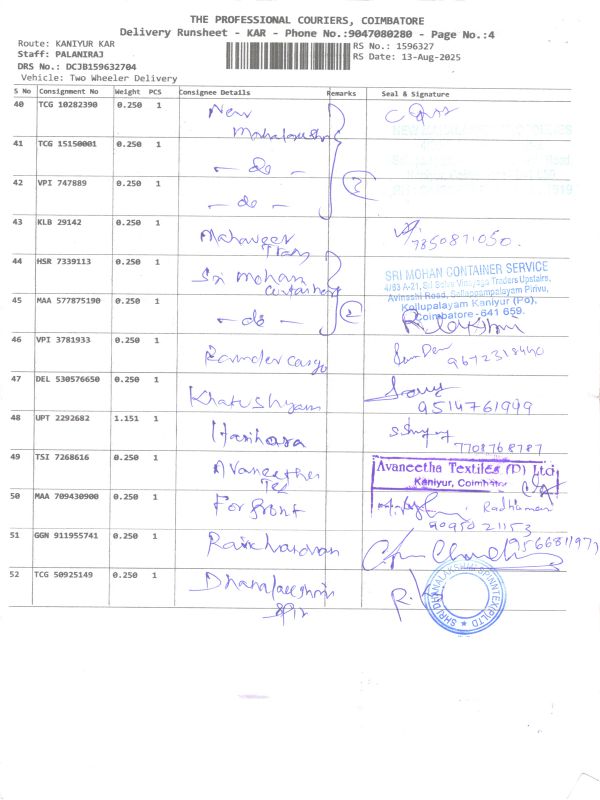 THE PROFESSIONAL COURIERS, COIMBATORE
Delivery Runsheet - KAR - Phone No.:9047080280 - Page No.:4
Route: KANIYUR KAR
Staff: PALANIRAJ
DRS No.: DCJB159632704
Vehicle: Two Wheeler Delivery
RS No.: 1596327
RS Date: 13-Aug-2025
S No Consignment No Weight PCS Consignee Details Remarks Seal & Signature
40 TCG 10282390 0.250 1 New
41 TCG 15150001 0.250 1 - do -
42 VPI 747889 0.250 1 - do -
43 KLB 29142 0.250 1 Mahaveer
Trans
7850871050.
44 HSR 7339113 0.250 1 Sri Mohan
Container
SRI MOHAN CONTAINER SERVICE
4/83 A-21, Sri Selva Vinayaga Traders Upstairs,
Avinashi Road, Gollappampalayam Pirivu,
Kollupalayam Kaniyur (Po),
Coimbatore - 641 659.
45 MAA 577875190 0.250 1 - do - 2
46 VPI 3781933 0.250 1 Ravinder Cargo
9672318440
47 DEL 530576650 0.250 1 Khatushyam
9514761999
48 UPT 2292682 1.151 1 Harihara
7708768787
49 TSI 7268616 0.250 1 Avaneetha
Tex
Avaneetha Textiles (P) Ltd
Kaniyur, Coimbatore
50 MAA 709430900 0.250 1 Forfront
Radhamani
9095021153
51 GGN 911955741 0.250 1 Ramchandran
9566811977
52 TCG 50925149 0.250 1 Dhanalaxshmi
SHRI DHANALAKSHMI SPINNTEX(P)LTD